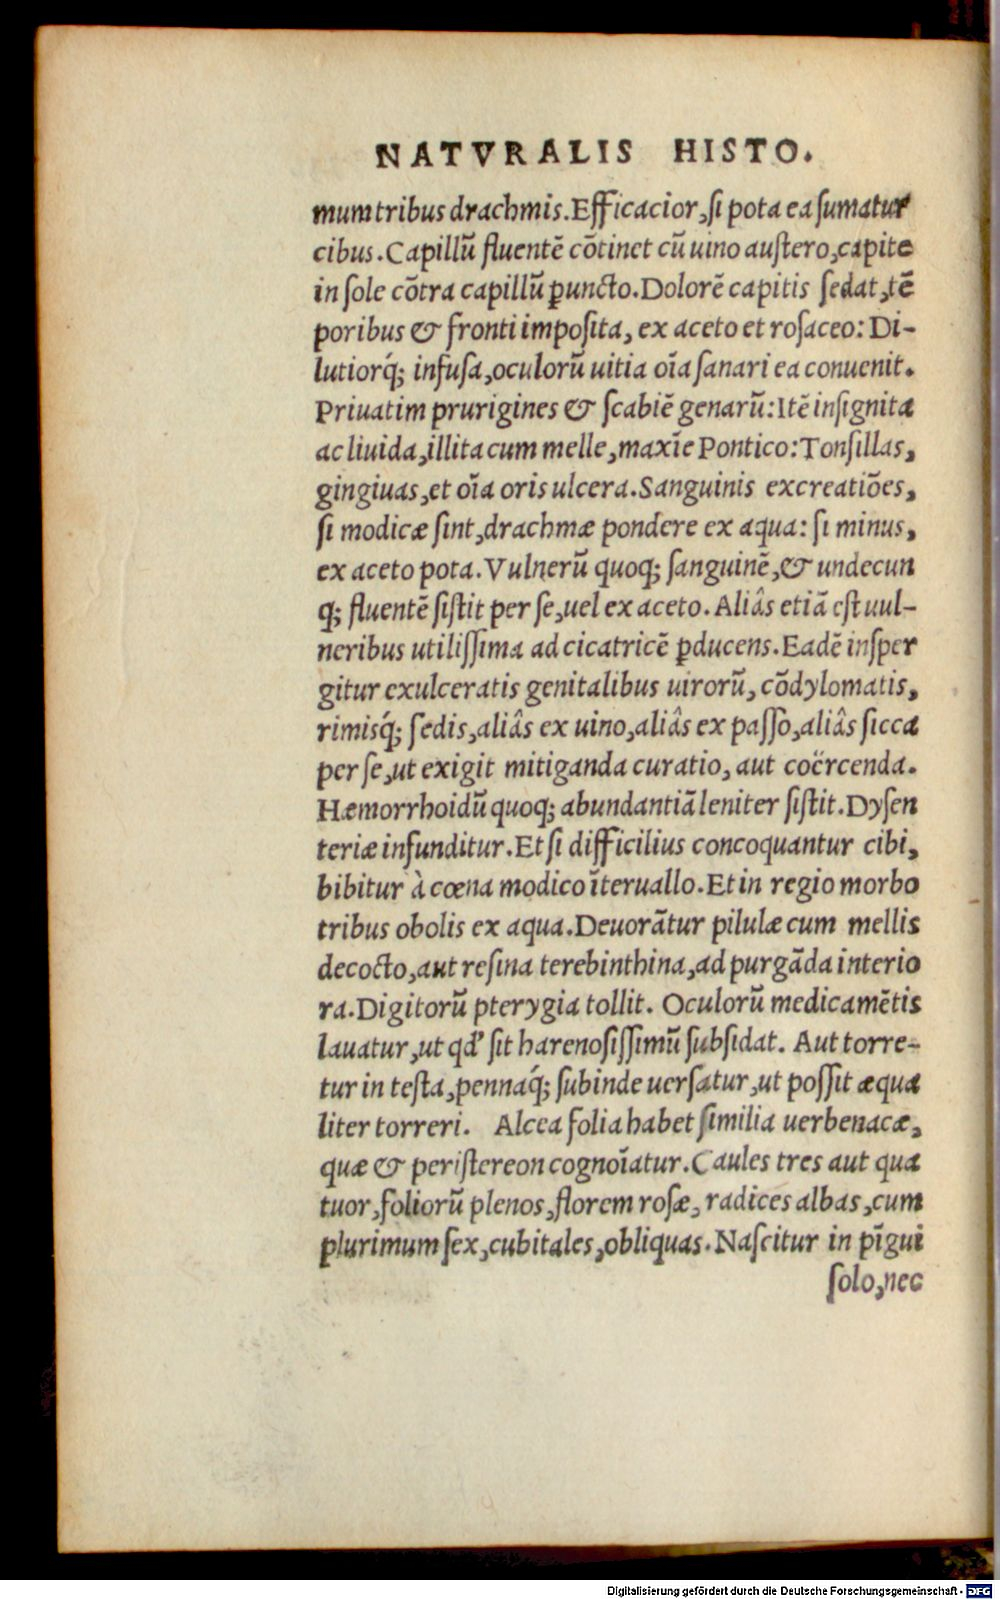 NATVRALIS HISTO.
mum tribus drachmis. Efficacior, si pota ea sumatur
cibus. Capillũ fluentẽ cõtinet cũ uino austero, capite
in sole cõtra capillũ ꝑuncto. Dolorẽ capitis sedat, tẽ
poribus & fronti imposita, ex aceto et rosaceo: Di-
lutiorq́; infusa, oculorũ uitia oĩa sanari ea conuenit.
Priuatim prurigines & scabiẽ genarũ: Itẽ insignita
ac liuida, illita cum melle, maxĩe Pontico: Tonsillas,
gingiuas, et oĩa oris ulcera. Sanguinis excreatiões,
si modicæ sint, drachmæ pondere ex aqua: si minus,
ex aceto pota. Vulnerũ quoq; sanguinẽ, & undecun
q; fluentẽ sistit per se, uel ex aceto. Aliâs etiã est uul-
neribus utilissima ad cicatricẽ ꝑducens. Eadẽ insper
gitur exulceratis genitalibus uirorũ, cõdylomatis,
rimisq́; sedis, aliâs ex uino, aliâs ex passo, aliâs sicca
per se, ut exigit mitiganda curatio, aut coërcenda.
Hæmorrhoidũ quoq; abundantiã leniter sistit. Dysen
teriæ infunditur. Et si difficilius concoquantur cibi,
bibitur à cœna modico ĩteruallo. Et in regio morbo
tribus obolis ex aqua. Deuorãtur pilulæ cum mellis
decocto, aut resina terebinthina, ad purgãda interio
ra. Digitorũ pterygia tollit. Oculorũ medicamẽtis
lauatur, ut qđ sit harenosissimũ subsidat. Aut torre-
tur in testa, pennaq́; subinde uersatur, ut possit æqua
liter torreri. Alcea folia habet similia uerbenacæ,
quæ & peristereon cognoĩatur. Caules tres aut qua
tuor, foliorũ plenos, florem rosæ, radices albas, cum
plurimum sex, cubitales, obliquas. Nascitur in pĩgui
solo, nec
Digitalisierung gefördert durch die Deutsche Forschungsgemeinschaft - DFG